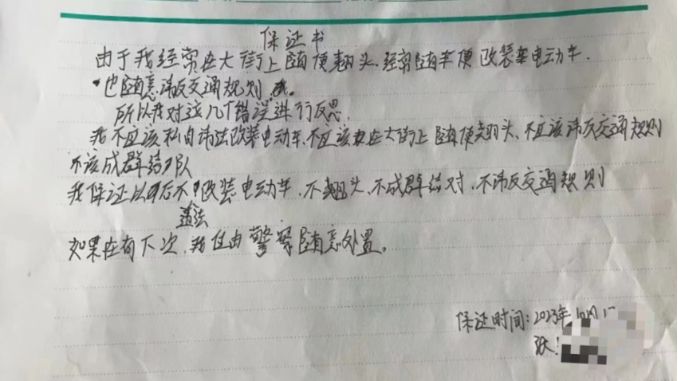 保证书
由于我经常在大街上随便翘头,经常随便改装电动车.
也随意违反交通规则.
所以我对这几个错误进行反思.
我不应该私自违法改装电动车,不应该在大街上随便翘头,不应该违反交通规则
不该成群结队
我保证以后不违法改装电动车,不翘头,不成群结对,不违反交通规则
如果在有下次,我任由警察随意处置。
保证时间:2023年10月1
张